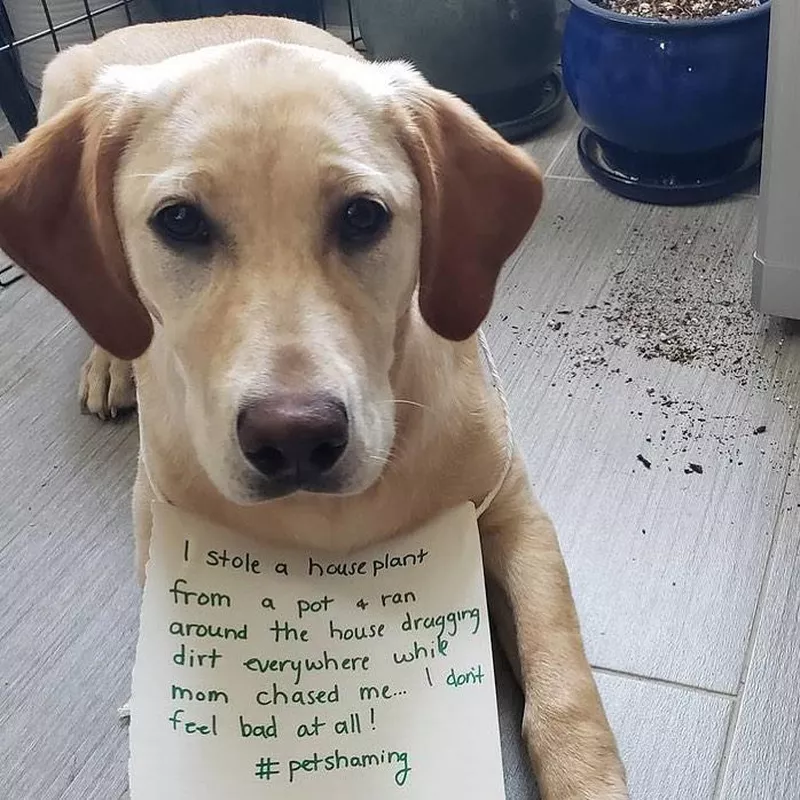 I stole a houseplant
from a pot & ran
around the house dragging
dirt everywhere while
mom chased me... I don't
feel bad at all!
# petshaming